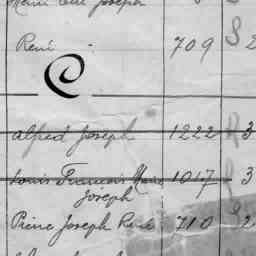 Joseph
René 709 S 2
C
Alfred Joseph 1222 R 3
Louis François Marie 1017 R 3
Joseph
Pierre Joseph René 710 S 2